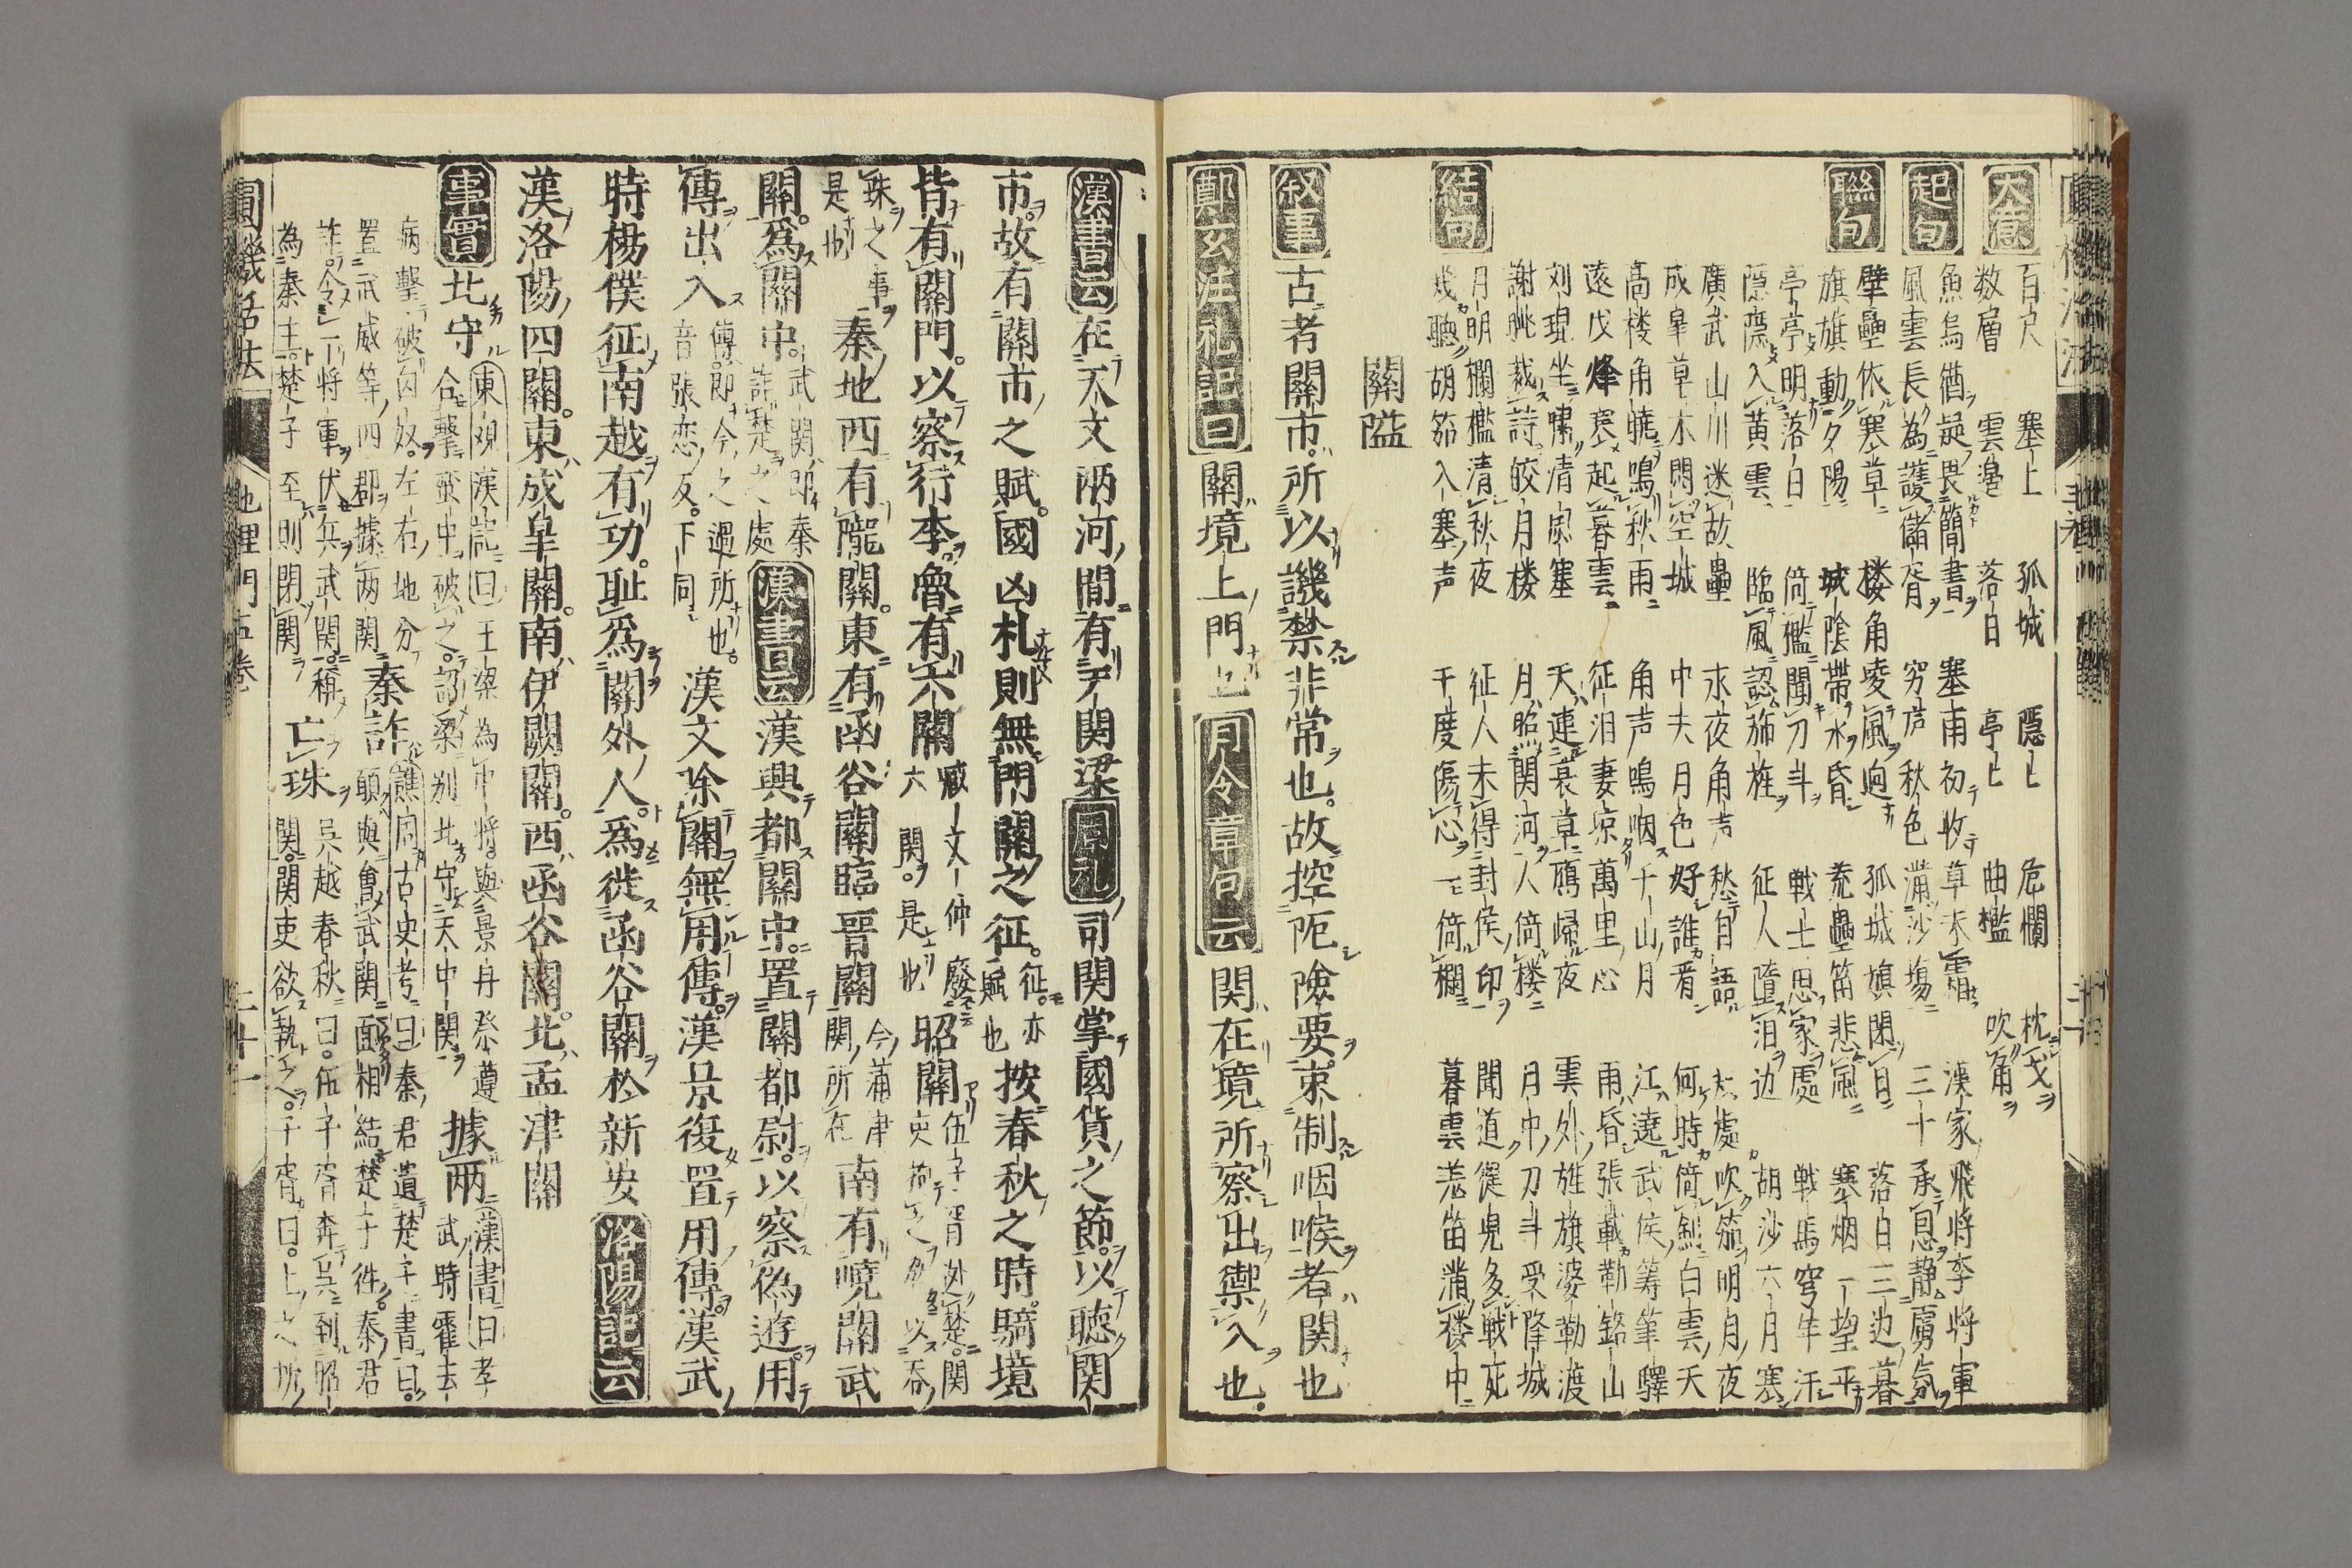 大意 百尺 塞上 孤城 隠〻 危欄 枕戈
数層 雲邉 落日 亭〻 曲檻 吹角
起句 魚鳥猶疑畏簡書 塞南初收草未霜 漢家飛将李将軍
風雲長為護儲胥 穷芦秋色満沙場 三十承恩静虜氛
聯句 壁壘依塞草 楼角凌風逈 孤城旗閑日 落日三边暮
旗旗動夕陽 城陰帶水昏 荒壘笛悲風 塞烟一望平
亭亭明落日 倚檻聞刀斗 戰士思家處 戦馬穹牛汗
隠隠入黄雲 臨風認旆旌 征人墮泪边 胡沙六月寒
廣武山川迷故壘 永夜角声愁自語 太處吹笳明月夜
成皐草木悶空城 中夫月色好誰看 何時倚劍白雲天
高楼角曉鳴秋雨 角声鳴咽千山月 江遶武侯筹筆驛
遠戊烽裹起暮雲 征泪妻凉萬里心 雨昏張載勒銘山
刘琨坐嘯清宻塞 天連衰草鴈歸夜 雲外旌旗婆勒渡
謝眺裁詩皎月楼 月照関河人倚楼 月中刀斗受降城
結句 月明欄檻清秋夜 征人未得封侯印 聞道健兒多戦死
幾聴胡笳入塞声 千度傷心一倚欄 暮雲羌笛満楼中
關隘
叙事 古者關市所以譏禁非常也故控阨險要束制咽喉者関也
鄭玄注礼記曰 關境上門也 月令章句云 関在境所察出禦入也
漢書云 在天文兩河間有于関梁 周礼 司関掌國貨之節以聴関
市故有關市之賦國凶札則無門關之征 征亦賦也 按春秋之時騎境
皆有關門以察行李魯有六關 臧文仲廢六関是也 昭關 伍子胥
珠之事是也 秦地西有隴關東有函谷關臨晉關 今蒲津関所在 南有嶢關武
關為關中 武関即秦詐楚之處 漢書曰云 漢興都關中置關都尉以察偽遊用
傳出入 傳即今之過所也音張恋反下同 漢文除關無用傳漢景復置用傳漢武
時楊僕征南越有功耻為關外人為徙函谷關於新安 洛陽記云
漢洛陽四關東成皐關南伊闕關西函谷關北孟津關
事實 北守 東観漢記曰王梁為中将與景丹祭遵合擊蛮中破之詔梁别北守天中関 據兩 漢書曰孝武時霍去
病擊破匈奴左右地分置武威等四郡據两関 秦詐 譙周古史考曰秦君遺楚子書曰願與會武関面相結楚子徃秦君
詐令一将軍伏兵武関稱為秦王楚子至則閉関 亡珠 吳越春秋曰伍子胥奔吳到昭関関吏欲執之子胥曰上之所
圓機活法 地理門五卷 二十一